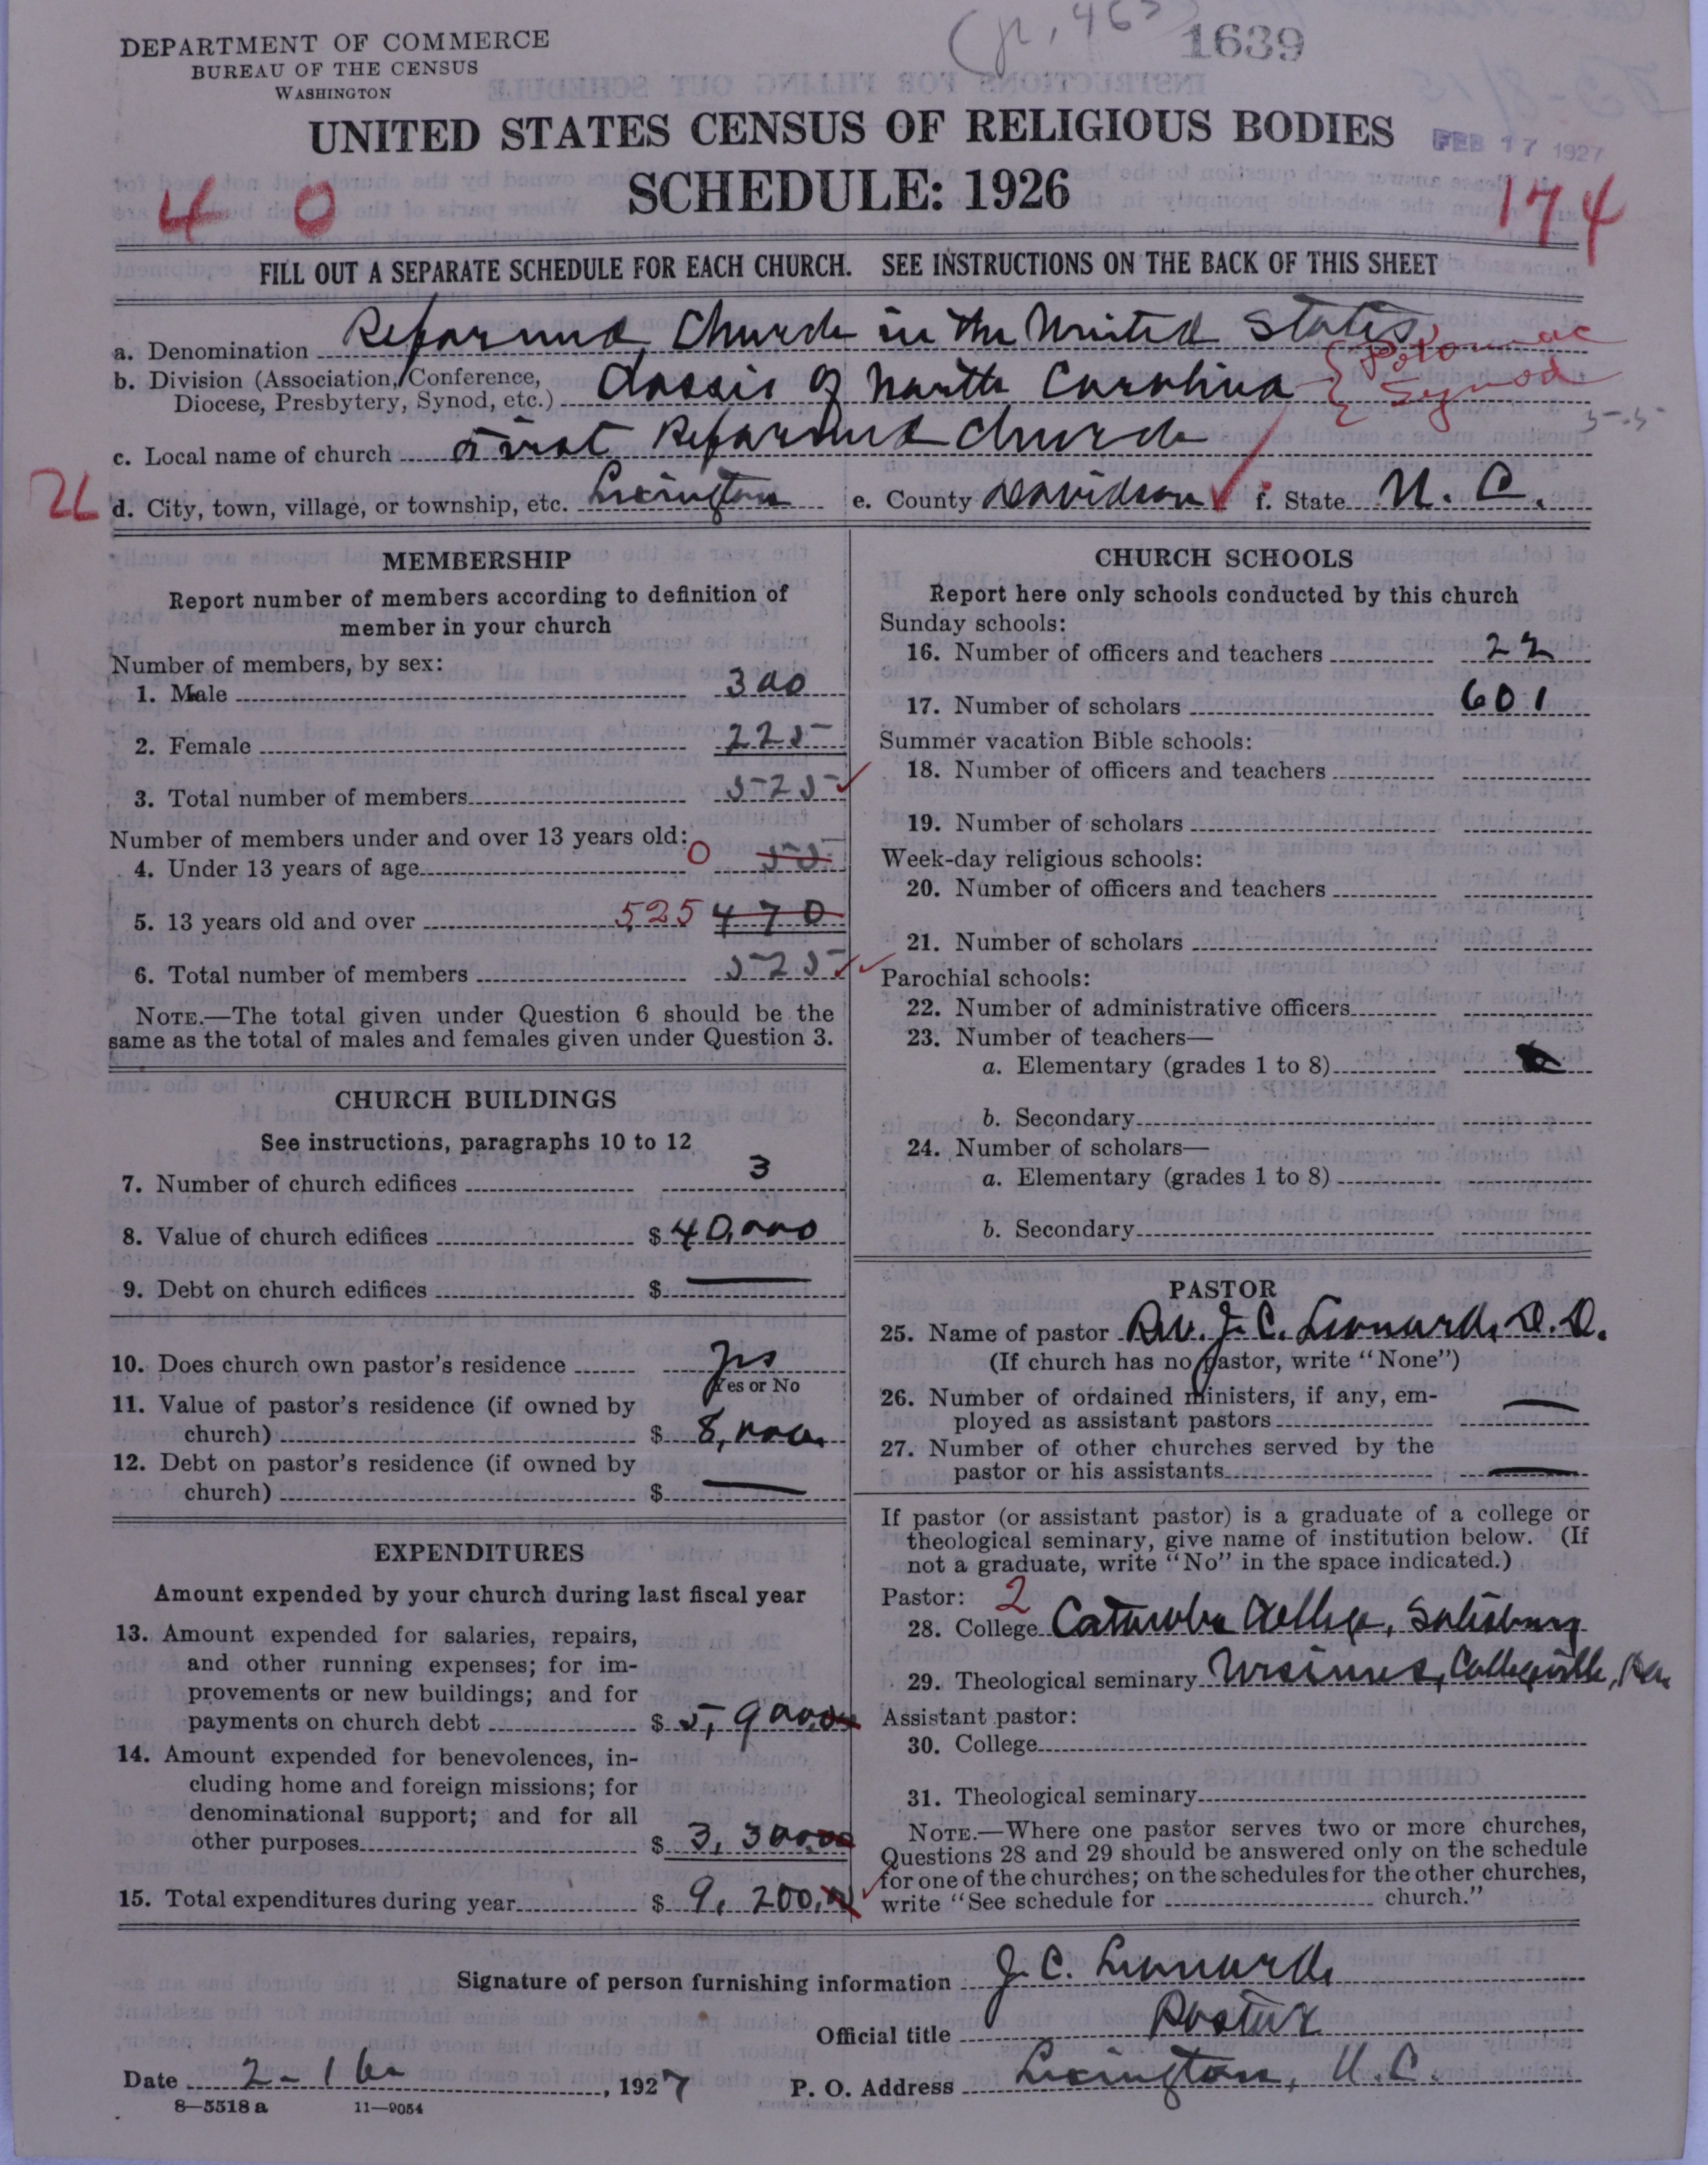 (p. 463)
1639
DEPARTMENT OF COMMERCE
BUREAU OF THE CENSUS
WASHINGTON
UNITED STATES CENSUS OF RELIGIOUS BODIES
FEB 17 1927
SCHEDULE: 1926
4 0
174
FILL OUT A SEPARATE SCHEDULE FOR EACH CHURCH. SEE INSTRUCTIONS ON THE BACK OF THIS SHEET
a. Denomination Reformed Church in the United States
b. Division (Association, Conference, Diocese, Presbytery, Synod, etc.) Classis of North Carolina { Potomac Synod
c. Local name of church First Reformed Church
26
d. City, town, village, or township, etc. Lexington e. County Davidson ✓ f. State N. C.
MEMBERSHIP
Report number of members according to definition of
member in your church
Number of members, by sex:
1. Male 300
2. Female 225
3. Total number of members 525 ✓
Number of members under and over 13 years old:
4. Under 13 years of age 0 55
5. 13 years old and over 525 470
6. Total number of members 525 ✓
NOTE.—The total given under Question 6 should be the
same as the total of males and females given under Question 3.
CHURCH BUILDINGS
See instructions, paragraphs 10 to 12
7. Number of church edifices 3
8. Value of church edifices $ 40,000
9. Debt on church edifices $ —
10. Does church own pastor's residence Yes
Yes or No
11. Value of pastor's residence (if owned by
church) $ 8,000
12. Debt on pastor's residence (if owned by
church) $ —
EXPENDITURES
Amount expended by your church during last fiscal year
13. Amount expended for salaries, repairs,
and other running expenses; for im-
provements or new buildings; and for
payments on church debt $ 5,900.00
14. Amount expended for benevolences, in-
cluding home and foreign missions; for
denominational support; and for all
other purposes $ 3,300.00
15. Total expenditures during year $ 9,200.
CHURCH SCHOOLS
Report here only schools conducted by this church
Sunday schools:
16. Number of officers and teachers 22
17. Number of scholars 601
Summer vacation Bible schools:
18. Number of officers and teachers
19. Number of scholars
Week-day religious schools:
20. Number of officers and teachers
21. Number of scholars
Parochial schools:
22. Number of administrative officers
23. Number of teachers—
a. Elementary (grades 1 to 8)
b. Secondary
24. Number of scholars—
a. Elementary (grades 1 to 8)
b. Secondary
PASTOR
25. Name of pastor Rev. J. C. Leonard, D. D.
(If church has no pastor, write "None")
26. Number of ordained ministers, if any, em-
ployed as assistant pastors —
27. Number of other churches served by the
pastor or his assistants —
If pastor (or assistant pastor) is a graduate of a college or
theological seminary, give name of institution below. (If
not a graduate, write "No" in the space indicated.)
Pastor: 2
28. College Catawba College, Salisbury
29. Theological seminary Ursinus, Collegeville, Pa
Assistant pastor:
30. College
31. Theological seminary
NOTE.—Where one pastor serves two or more churches,
Questions 28 and 29 should be answered only on the schedule
for one of the churches; on the schedules for the other churches,
write "See schedule for church."
Signature of person furnishing information J. C. Leonard
Official title Pastor
Date 2-16, 1927 P. O. Address Lexington, N. C.
8—5518 a 11—9054